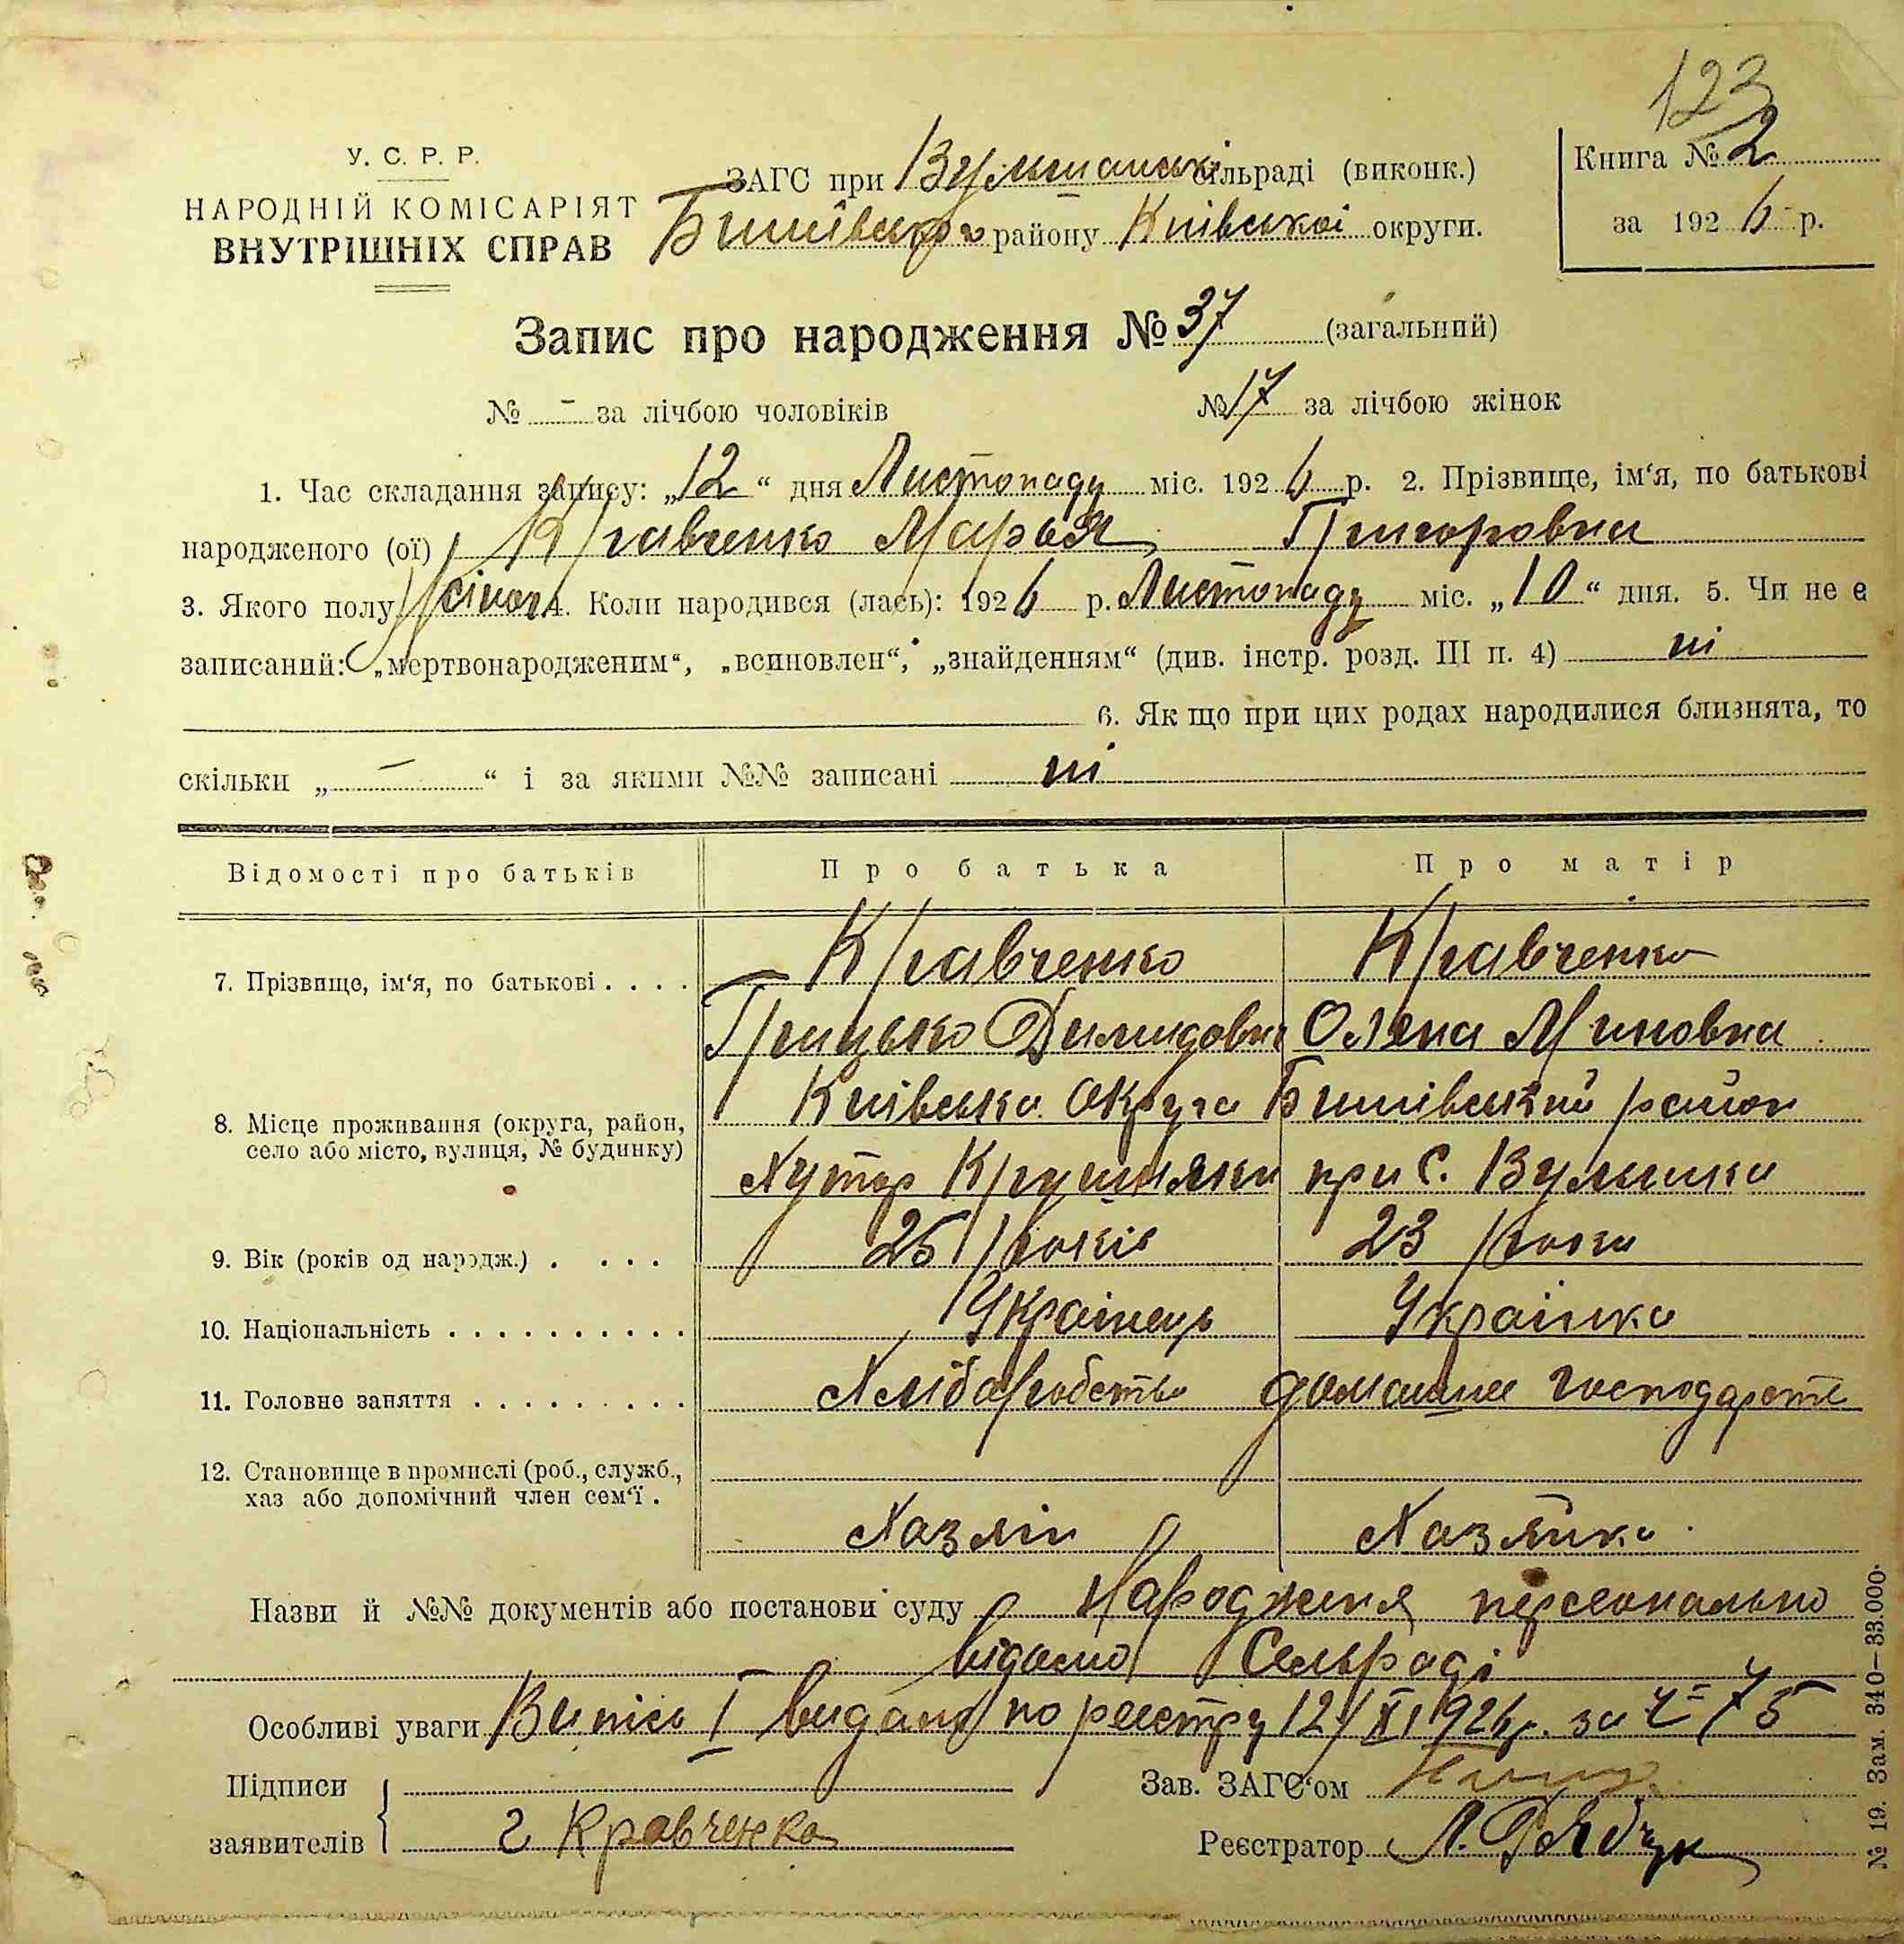 123
У. С. Р. Р.
НАРОДНІЙ КОМІСАРІЯТ
ВНУТРІШНІХ СПРАВ
ЗАГС при Вульшанські сільраді (виконк.)
Бишівського району Київської округи.
Книга № 2
за 1926 р.
Запис про народження № 37 (загальний)
№ - за лічбою чоловіків № 17 за лічбою жінок
1. Час складання запису: „12“ дня Листопаду міс. 1926 р. 2. Прізвище, ім‘я, по батькові
народженого (ої) Кравченко Марья Григоровна
3. Якого полу жіноч 4. Коли народився (лась): 1926 р. Листопаду міс. „10“ дня. 5. Чи не є
записаний: „мертвонародженим“, „всиновлен“, „знайденням“ (див. інстр. розд. III п. 4) ні
6. Як що при цих родах народилися близнята, то
скільки „ — “ і за якими №№ записані ні
Відомості про батьків Про батька Про матір
7. Прізвище, ім‘я, по батькові . . . . Кравченко Кравченко
Грицько Демидович Олена Миновна
8. Місце проживання (округа, район, село або місто, вулиця, № будинку) Київська Округа Бишівський район
Хутор при с. Вульшка
9. Вік (років од народж.) . . . . 25 років 23 роки
10. Національність . . . . . . . . . . . Українець Українка
11. Головне заняття . . . . . . . . . Хліборобство домашнє господарств
12. Становище в промислі (роб., служб., хаз або допомічний член сем‘ї .
Хазяїн Хазяйка
Назви й №№ документів або постанови суду Народження персонально
відомо Сельраді
Особливі уваги Випись I видано по реєстру 12/XI 1926 р. за № 75
Підписи
заявителів г Кравченко
Зав. ЗАГС‘ом
Реєстратор Л. Рябчук
№ 19. Зам. 340—33.000.